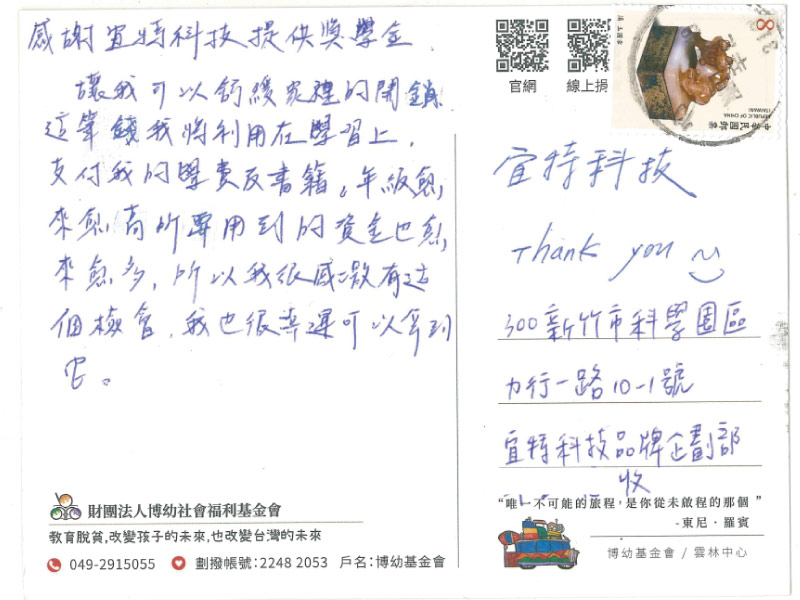 感謝宜特科技提供獎學金
讓我可以舒緩家裡的開銷
這筆錢我將利用在學習上,
支付我的學費及書籍。年級愈
來愈高所要用到的資金也愈
來愈多,所以我很感激有這
個機會,我也很幸運可以拿到
它。
財團法人博幼社會福利基金會
教育脫貧,改變孩子的未來,也改變台灣的未來
049-2915055 劃撥帳號:2248 2053 戶名:博幼基金會
官網 線上捐
8
中華民國郵票
REPUBLIC OF CHINA
(TAIWAN)
宜特科技
Thank you
300新竹市科學園區
力行一路10-1號
宜特科技品牌企劃部
收
“唯一不可能的旅程,是你從未啟程的那個”
-東尼·羅賓
博幼基金會 / 雲林中心